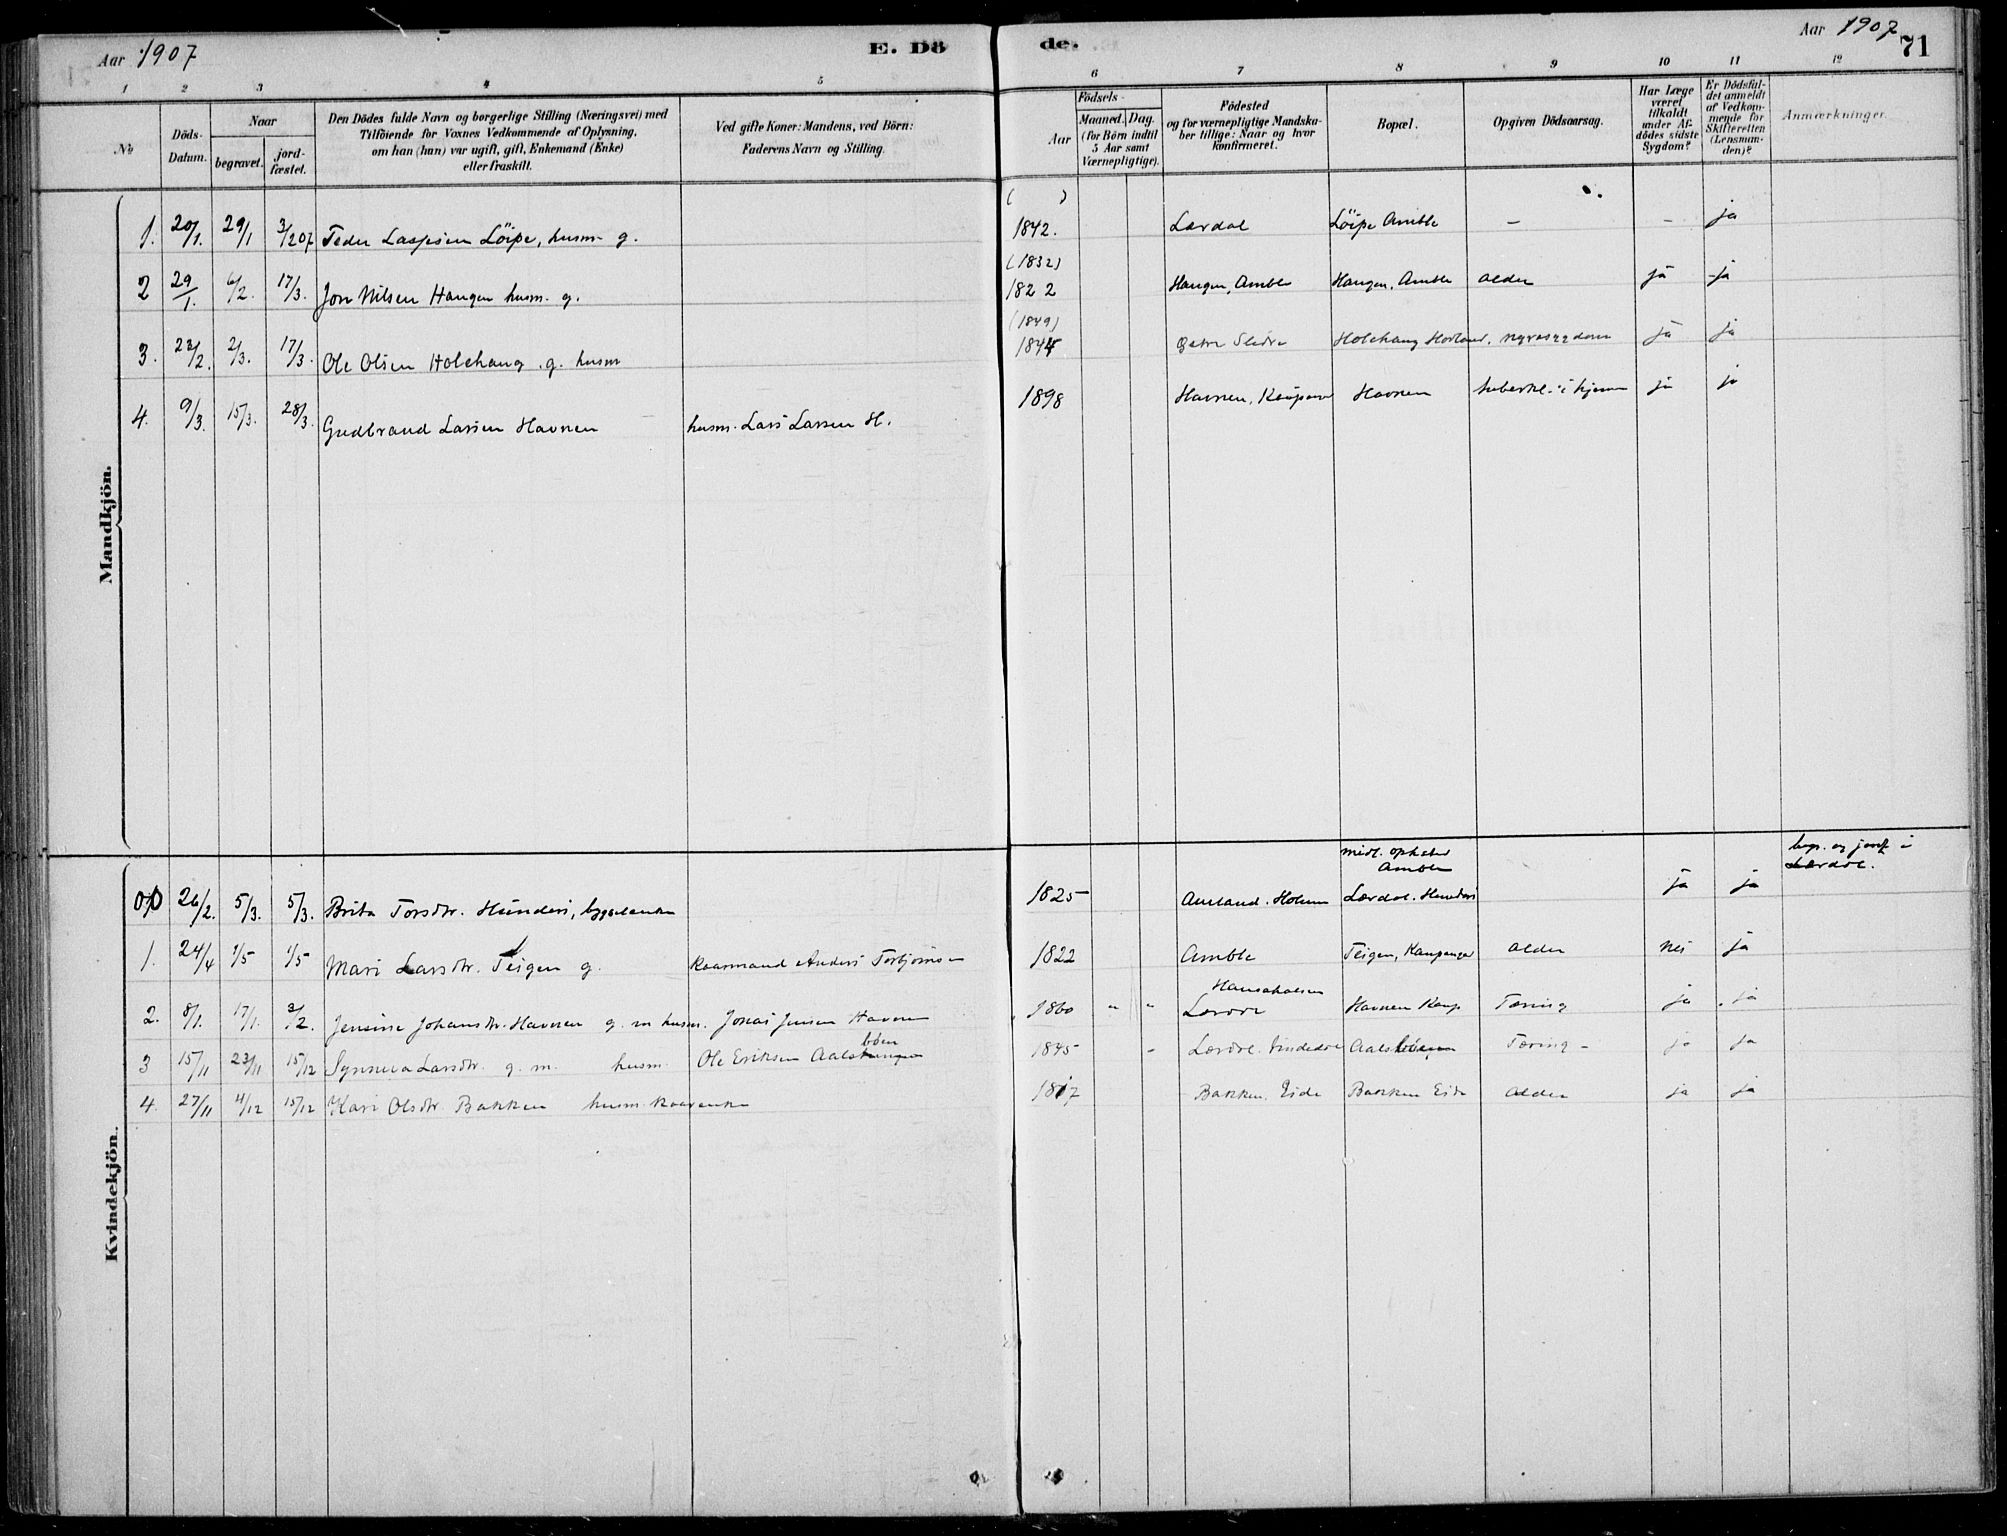 Aar 1907
E. Dö
de.
Aar 1907
71
1 2 3 4 5 6 7 8 9 10 11 12
No
Döds-Datum.
Naar
begravet.
jord-fæstet.
Den Dödes fulde Navn og borgerlige Stilling (Næringsvei) med
Tilföiende for Voxnes Vedkommende af Oplysning,
om han (hun) var ugift, gift, Enkemand (Enke)
eller fraskilt.
Ved gifte Koner: Mandens, ved Börn:
Faderens Navn og Stilling
Födsels-
Aar
Maaned. Dag.
(for Börn indtil
5 Aar samt
Værnepligtige).
Födested
og for værnepligtige Mandska-
ber tillige: Naar og hvor
konfirmeret.
Bopæl.
Opgiven Dödsaarsag.
Har Læge
været
tilkaldt
under Af-
dödes sidste
Sygdom?
Er Dödsfal-
det anmeldt
af Vedkom-
mende for
Skifteretten
(Lensman-
den)?
Anmærkninger.
Mandkjön.
( )
1. 20/1. 29/1 3/2 07 Peder Lassesen Löipe, husm. g. 1842. Lærdal Löipe Amble – – ja
(1832)
2 29/1. 6/2. 17/3. Jon Nilsen Haugen husm. g. 1822 Haugen, Amble Haugen, Amble alder ja ja
(1849)
3. 22/2. 2/3. 17/3. Ole Olsen Holehaug . g. husm 1844 Slidre Holehaug nyresygdom ja ja
4. 9/3. 15/3. 28/3. Gudbrand Larsen Havnen husm. Lars Larsen H. 1898 Havnen, Kaupanger Havnen tuberkl. i hjernen ja ja
Kvindekjön.
midl. opholder Amble
begr. og jordf. i Lærdal.
26/2. 5/3. 5/3. Brita Torsdtr. Hunderi, 1825 Aurland. Holum Lærdal. Hunderi ja ja
1. 24/4 1/5 1/5 Mari Larsdtr. Teigen g. Kaarmand Anders Torbjörnsen 1822 Amble Teigen, Kaupanger Alder nei ja
2. 8/1. 17/1. 3/2. Jensine Johansdtr. Havnen g. m husm. Jonas Jensen Havnen 1860 " " Lærdal Havnen Kaup Tæring ja ja
3 15/11 23/11 15/12 Synneva Larsdtr. g. m. husm. Ole Eriksen Aalsböen 1845 " Lærdal. Aalsböen Tæring – ja ja
4. 27/11 4/12 15/12 Kari Olsdtr. Bakken husm. kaarenke 1817 Bakken, Eide Bakken Eide Alder ja ja